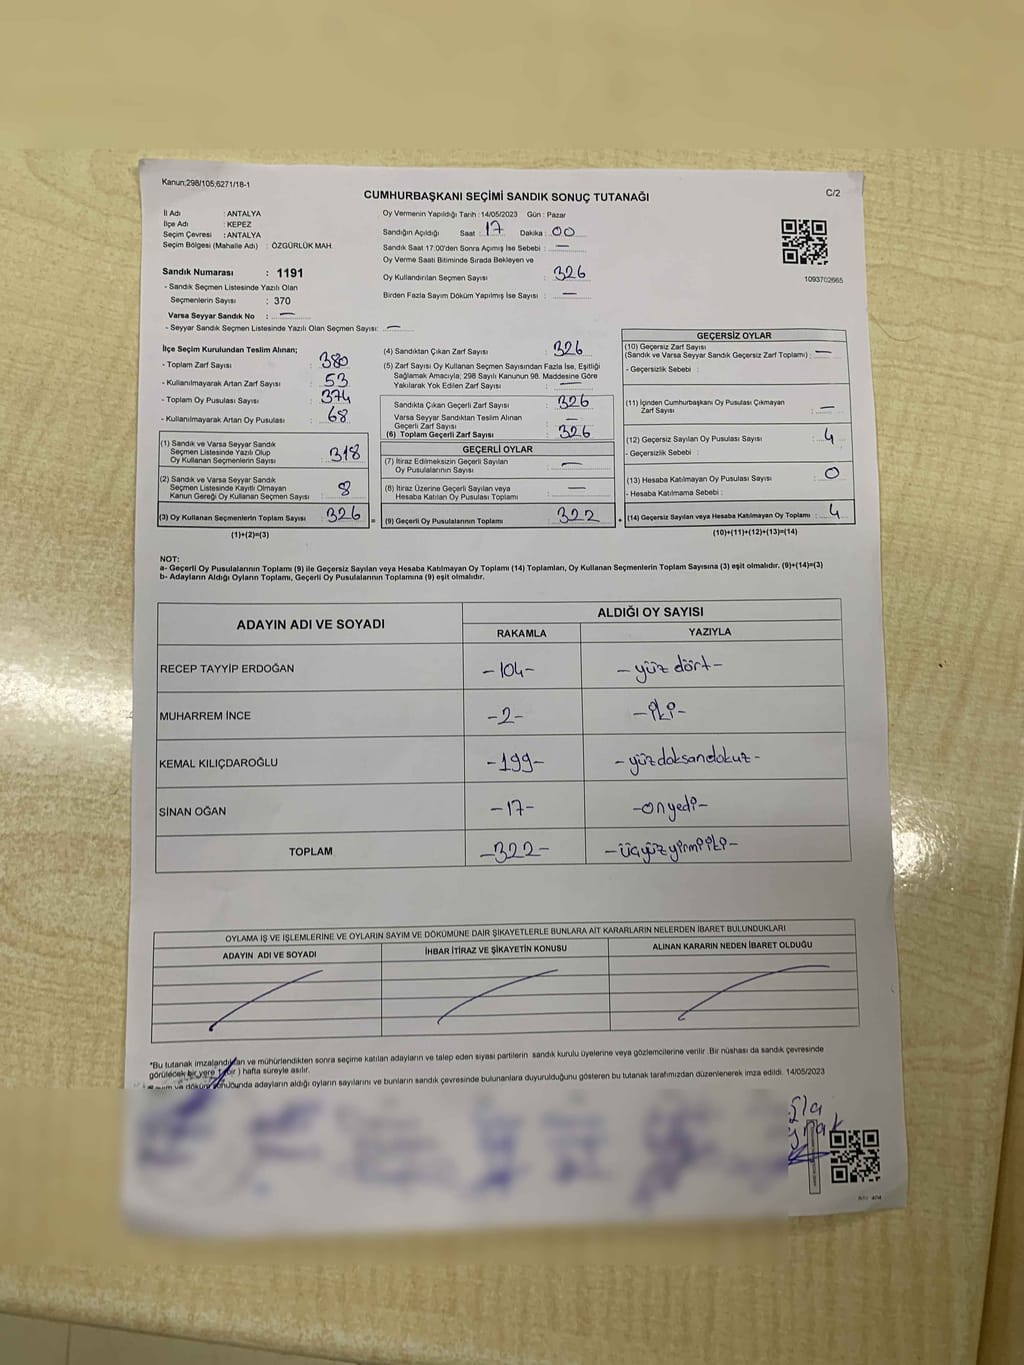 Kanun;298/105;6271/18-1
C/2
CUMHURBAŞKANI SEÇİMİ SANDIK SONUÇ TUTANAĞI
İl Adı : ANTALYA
İlçe Adı : KEPEZ
Seçim Çevresi : ANTALYA
Seçim Bölgesi (Mahalle Adı) : ÖZGÜRLÜK MAH.
Sandık Numarası : 1191
- Sandık Seçmen Listesinde Yazılı Olan
Seçmenlerin Sayısı : 370
Varsa Seyyar Sandık No : —
- Seyyar Sandık Seçmen Listesinde Yazılı Olan Seçmen Sayısı: —
Oy Vermenin Yapıldığı Tarih : 14/05/2023 Gün : Pazar
Sandığın Açıldığı Saat : 17 Dakika : 00
Sandık Saat 17:00'den Sonra Açılmış İse Sebebi : —
Oy Verme Saati Bitiminde Sırada Bekleyen ve
Oy Kullandırılan Seçmen Sayısı : 326
Birden Fazla Sayım Döküm Yapılmış İse Sayısı : —
1093702665
İlçe Seçim Kurulundan Teslim Alınan;
- Toplam Zarf Sayısı : 380
- Kullanılmayarak Artan Zarf Sayısı : 53
- Toplam Oy Pusulası Sayısı : 374
- Kullanılmayarak Artan Oy Pusulası : 68
(1) Sandık ve Varsa Seyyar Sandık
Seçmen Listesinde Yazılı Olup
Oy Kullanan Seçmenlerin Sayısı : 318
(2) Sandık ve Varsa Seyyar Sandık
Seçmen Listesinde Kayıtlı Olmayan
Kanun Gereği Oy Kullanan Seçmen Sayısı : 8
(3) Oy Kullanan Seçmenlerin Toplam Sayısı : 326
(1)+(2)=(3)
(4) Sandıktan Çıkan Zarf Sayısı : 326
(5) Zarf Sayısı Oy Kullanan Seçmen Sayısından Fazla İse, Eşitliği
Sağlamak Amacıyla; 298 Sayılı Kanunun 98. Maddesine Göre
Yakılarak Yok Edilen Zarf Sayısı : —
Sandıkta Çıkan Geçerli Zarf Sayısı : 326
Varsa Seyyar Sandıktan Teslim Alınan
Geçerli Zarf Sayısı : —
(6) Toplam Geçerli Zarf Sayısı : 326
GEÇERLİ OYLAR
(7) İtiraz Edilmeksizin Geçerli Sayılan
Oy Pusulalarının Sayısı : —
(8) İtiraz Üzerine Geçerli Sayılan veya
Hesaba Katılan Oy Pusulası Toplamı : —
= (9) Geçerli Oy Pusulalarının Toplamı : 322
GEÇERSİZ OYLAR
(10) Geçersiz Zarf Sayısı
(Sandık ve Varsa Seyyar Sandık Geçersiz Zarf Toplamı) : —
- Geçersizlik Sebebi :
(11) İçinden Cumhurbaşkanı Oy Pusulası Çıkmayan
Zarf Sayısı : —
(12) Geçersiz Sayılan Oy Pusulası Sayısı : 4
- Geçersizlik Sebebi :
(13) Hesaba Katılmayan Oy Pusulası Sayısı : 0
- Hesaba Katılmama Sebebi :
+ (14) Geçersiz Sayılan veya Hesaba Katılmayan Oy Toplamı : 4
(10)+(11)+(12)+(13)=(14)
NOT:
a- Geçerli Oy Pusulalarının Toplamı (9) ile Geçersiz Sayılan veya Hesaba Katılmayan Oy Toplamı (14) Toplamları, Oy Kullanan Seçmenlerin Toplam Sayısına (3) eşit olmalıdır. (9)+(14)=(3)
b- Adayların Aldığı Oyların Toplamı, Geçerli Oy Pusulalarının Toplamına (9) eşit olmalıdır.
ADAYIN ADI VE SOYADI ALDIĞI OY SAYISI
RAKAMLA YAZIYLA
RECEP TAYYİP ERDOĞAN -104- -yüz dört-
MUHARREM İNCE -2- -iki-
KEMAL KILIÇDAROĞLU -199- -yüzdoksandokuz-
SİNAN OĞAN -17- -onyedi-
TOPLAM -322- -üçyüzyirmiiki-
OYLAMA İŞ VE İŞLEMLERİNE VE OYLARIN SAYIM VE DÖKÜMÜNE DAİR ŞİKAYETLERLE BUNLARA AİT KARARLARIN NELERDEN İBARET BULUNDUKLARI
ADAYIN ADI VE SOYADI İHBAR İTİRAZ VE ŞİKAYETİN KONUSU ALINAN KARARIN NEDEN İBARET OLDUĞU
*Bu tutanak imzalandıktan ve mühürlendikten sonra seçime katılan adayların ve talep eden siyasi partilerin sandık kurulu üyelerine veya gözlemcilerine verilir. Bir nüshası da sandık çevresinde
görülecek bir yere 1 (bir) hafta süreyle asılır.
döküm sonucunda adayların aldığı oyların sayılarını ve bunların sandık çevresinde bulunanlara duyurulduğunu gösteren bu tutanak tarafımızdan düzenlenerek imza edildi. 14/05/2023